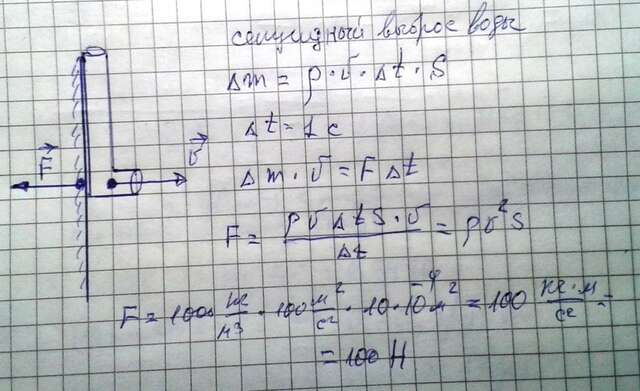 секундный выброс воды
Δm = ρ·υ·Δt·S
Δt = 1 c
F⃗
υ⃗
Δm·υ = FΔt
F = ρυΔtS·υ / Δt = ρυ²S
F = 1000 кг/м³ · 100 м²/с² · 10·10⁻⁴ м² = 100 кг·м/с² =
= 100 Н